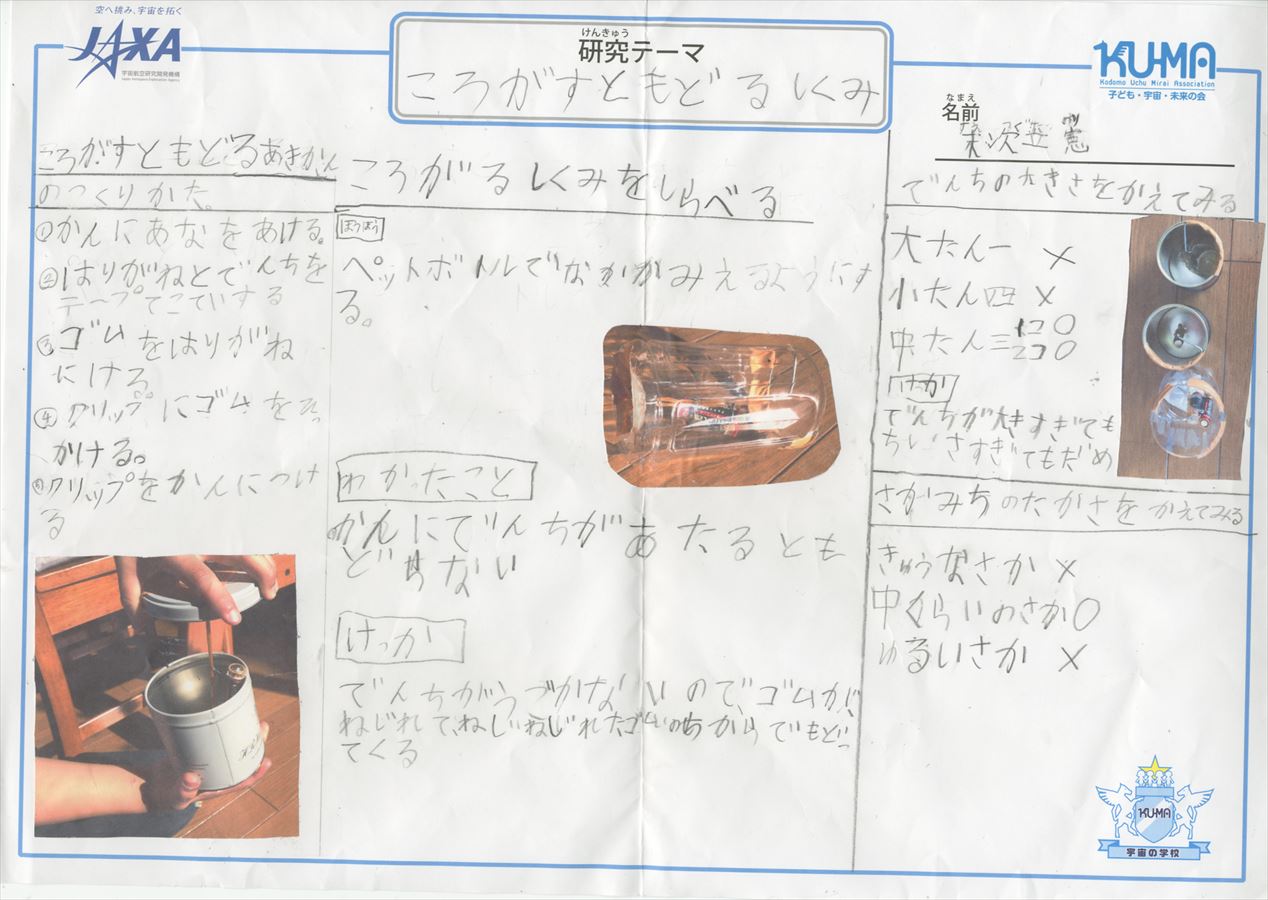 空へ挑み、宇宙を拓く
JAXA
宇宙航空研究開発機構
Japan Aerospace Exploration Agency
けんきゅう
研究テーマ
ころがすともどるしくみ
KU-MA
Kodomo Uchu Mirai Association
子ども・宇宙・未来の会
なまえ
名前
末次立憲
ころがすともどるあきかん
のつくりかた。
①かんにあなをあける。
②はりがねとでんちを
テープでこていする
③ゴムをはりがね
にける
④クリップにゴムをひっ
かける。
⑤クリップをかんにつけ
る
ころがるしくみをしらべる
ほうほう
ペットボトルでなかがみえるようにす
る。
わかったこと
かんにでんちがあたるとも
どらない
けっか
でんちがうごかないのでゴムが、
ねじれて、ねじねじれたゴムのちからでもどっ
てくる
でんちの大きさをかえてみる
大たん一 ×
小たん四 ×
中たん三 1コ○
2コ○
けっか
でんちが大きすぎても
ちいさすぎてもだめ
さかみちのたかさをかえてみる
きゅうなさか ×
中くらいのさか○
ゆるいさか ×
KU-MA
宇宙の学校